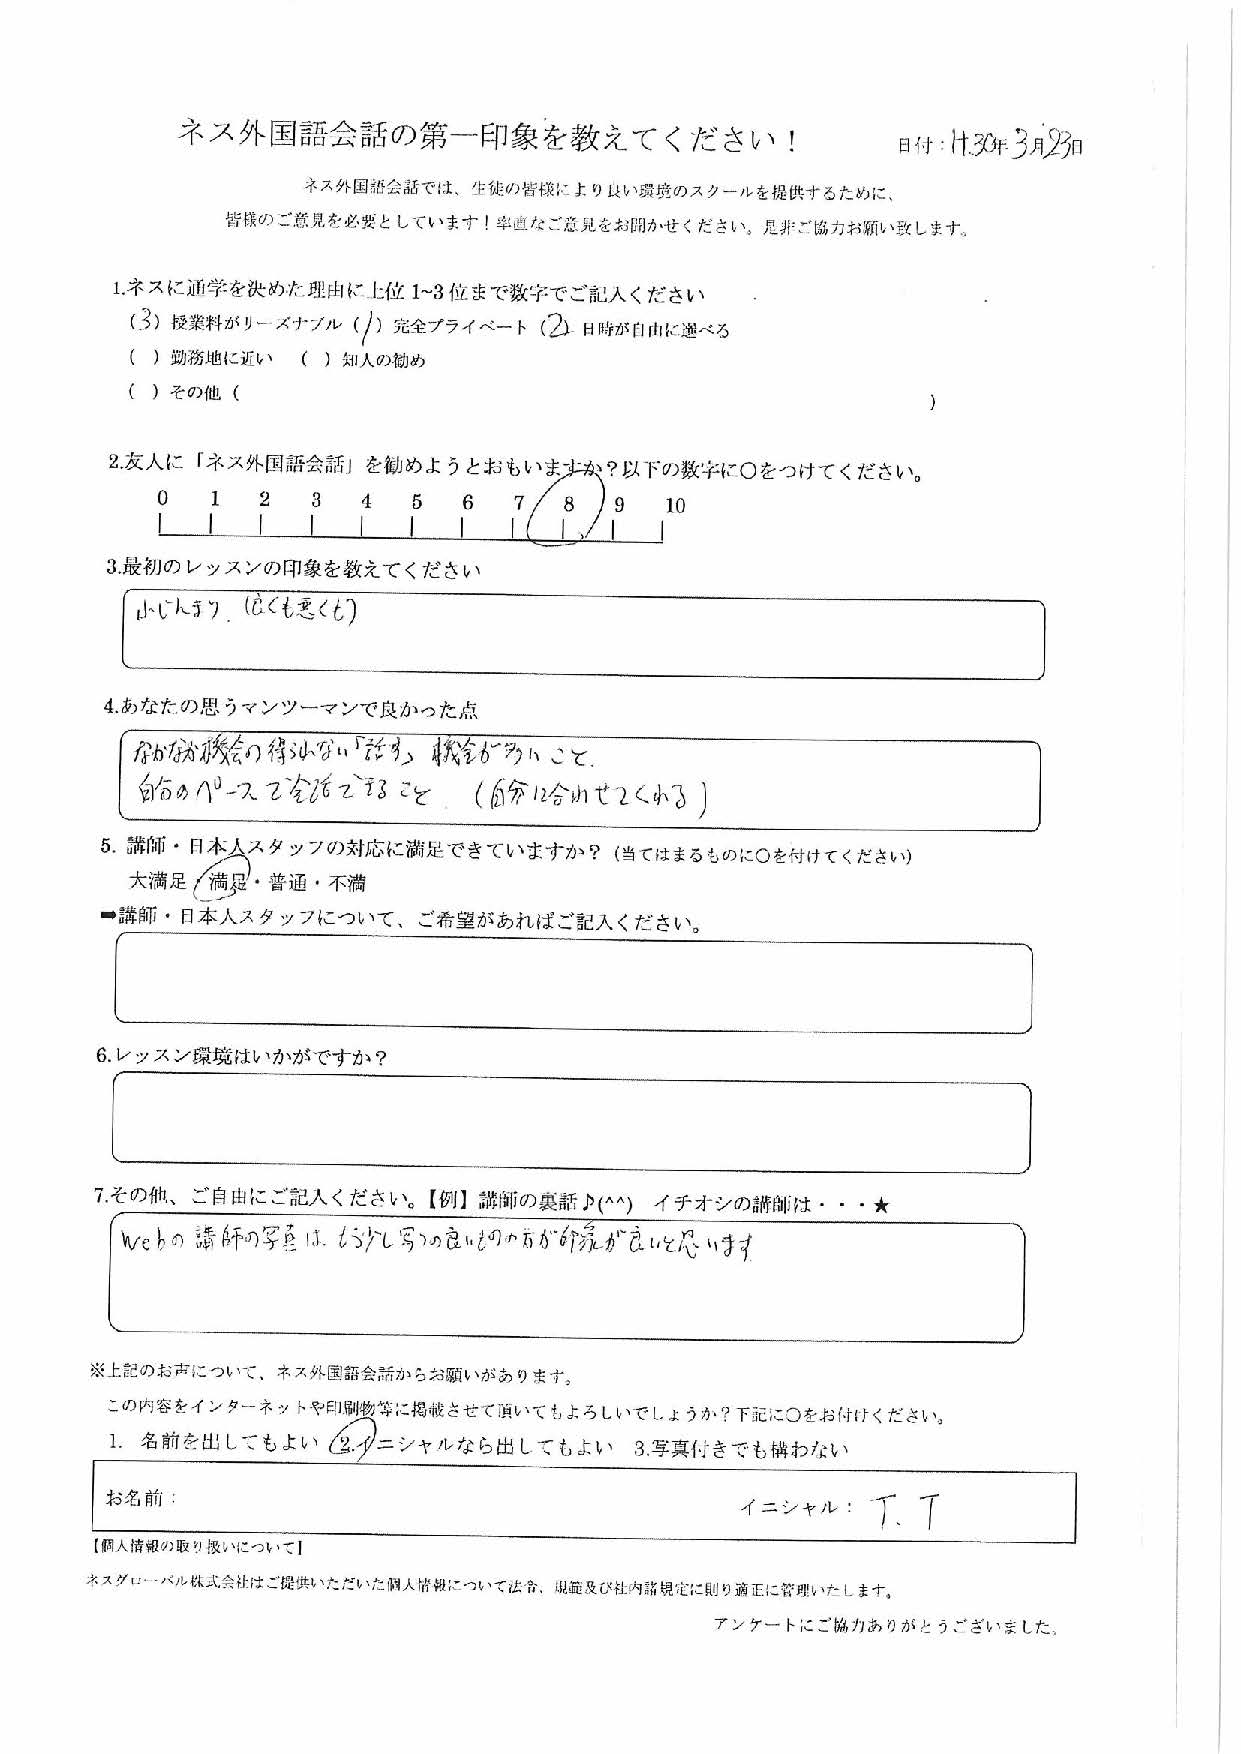 ネス外国語会話の第一印象を教えてください！
日付：H.30年3月23日
ネス外国語会話では、生徒の皆様により良い環境のスクールを提供するために、
皆様のご意見を必要としています！率直なご意見をお聞かせください。是非ご協力お願い致します。
1.ネスに通学を決めた理由に上位1~3位まで数字でご記入ください
（3）授業料がリーズナブル（1）完全プライベート（2）日時が自由に選べる
（ ）勤務地に近い （ ）知人の勧め
（ ）その他（ ）
2.友人に「ネス外国語会話」を勧めようとおもいますか？以下の数字に〇をつけてください。
0 1 2 3 4 5 6 7 8 9 10
3.最初のレッスンの印象を教えてください
小じんまり.（良くも悪くも）
4.あなたの思うマンツーマンで良かった点
なかなか機会の得られない「話す」機会が多いこと.
自分のペースで会話できること.（自分に合わせてくれる）
5. 講師・日本人スタッフの対応に満足できていますか？（当てはまるものに〇を付けてください）
大満足・満足・普通・不満
➡講師・日本人スタッフについて、ご希望があればご記入ください。
6.レッスン環境はいかがですか？
7.その他、ご自由にご記入ください。【例】講師の裏話♪(^^) イチオシの講師は・・・★
Webの講師の写真は、もう少し写りの良いものの方が印象が良いと思います
※上記のお声について、ネス外国語会話からお願いがあります。
この内容をインターネットや印刷物等に掲載させて頂いてもよろしいでしょうか？下記に〇をお付けください。
1. 名前を出してもよい 2.イニシャルなら出してもよい 3.写真付きでも構わない
お名前： イニシャル： T. T
【個人情報の取り扱いについて】
ネスグローバル株式会社はご提供いただいた個人情報について法令、規範及び社内諸規定に則り適正に管理いたします。
アンケートにご協力ありがとうございました。